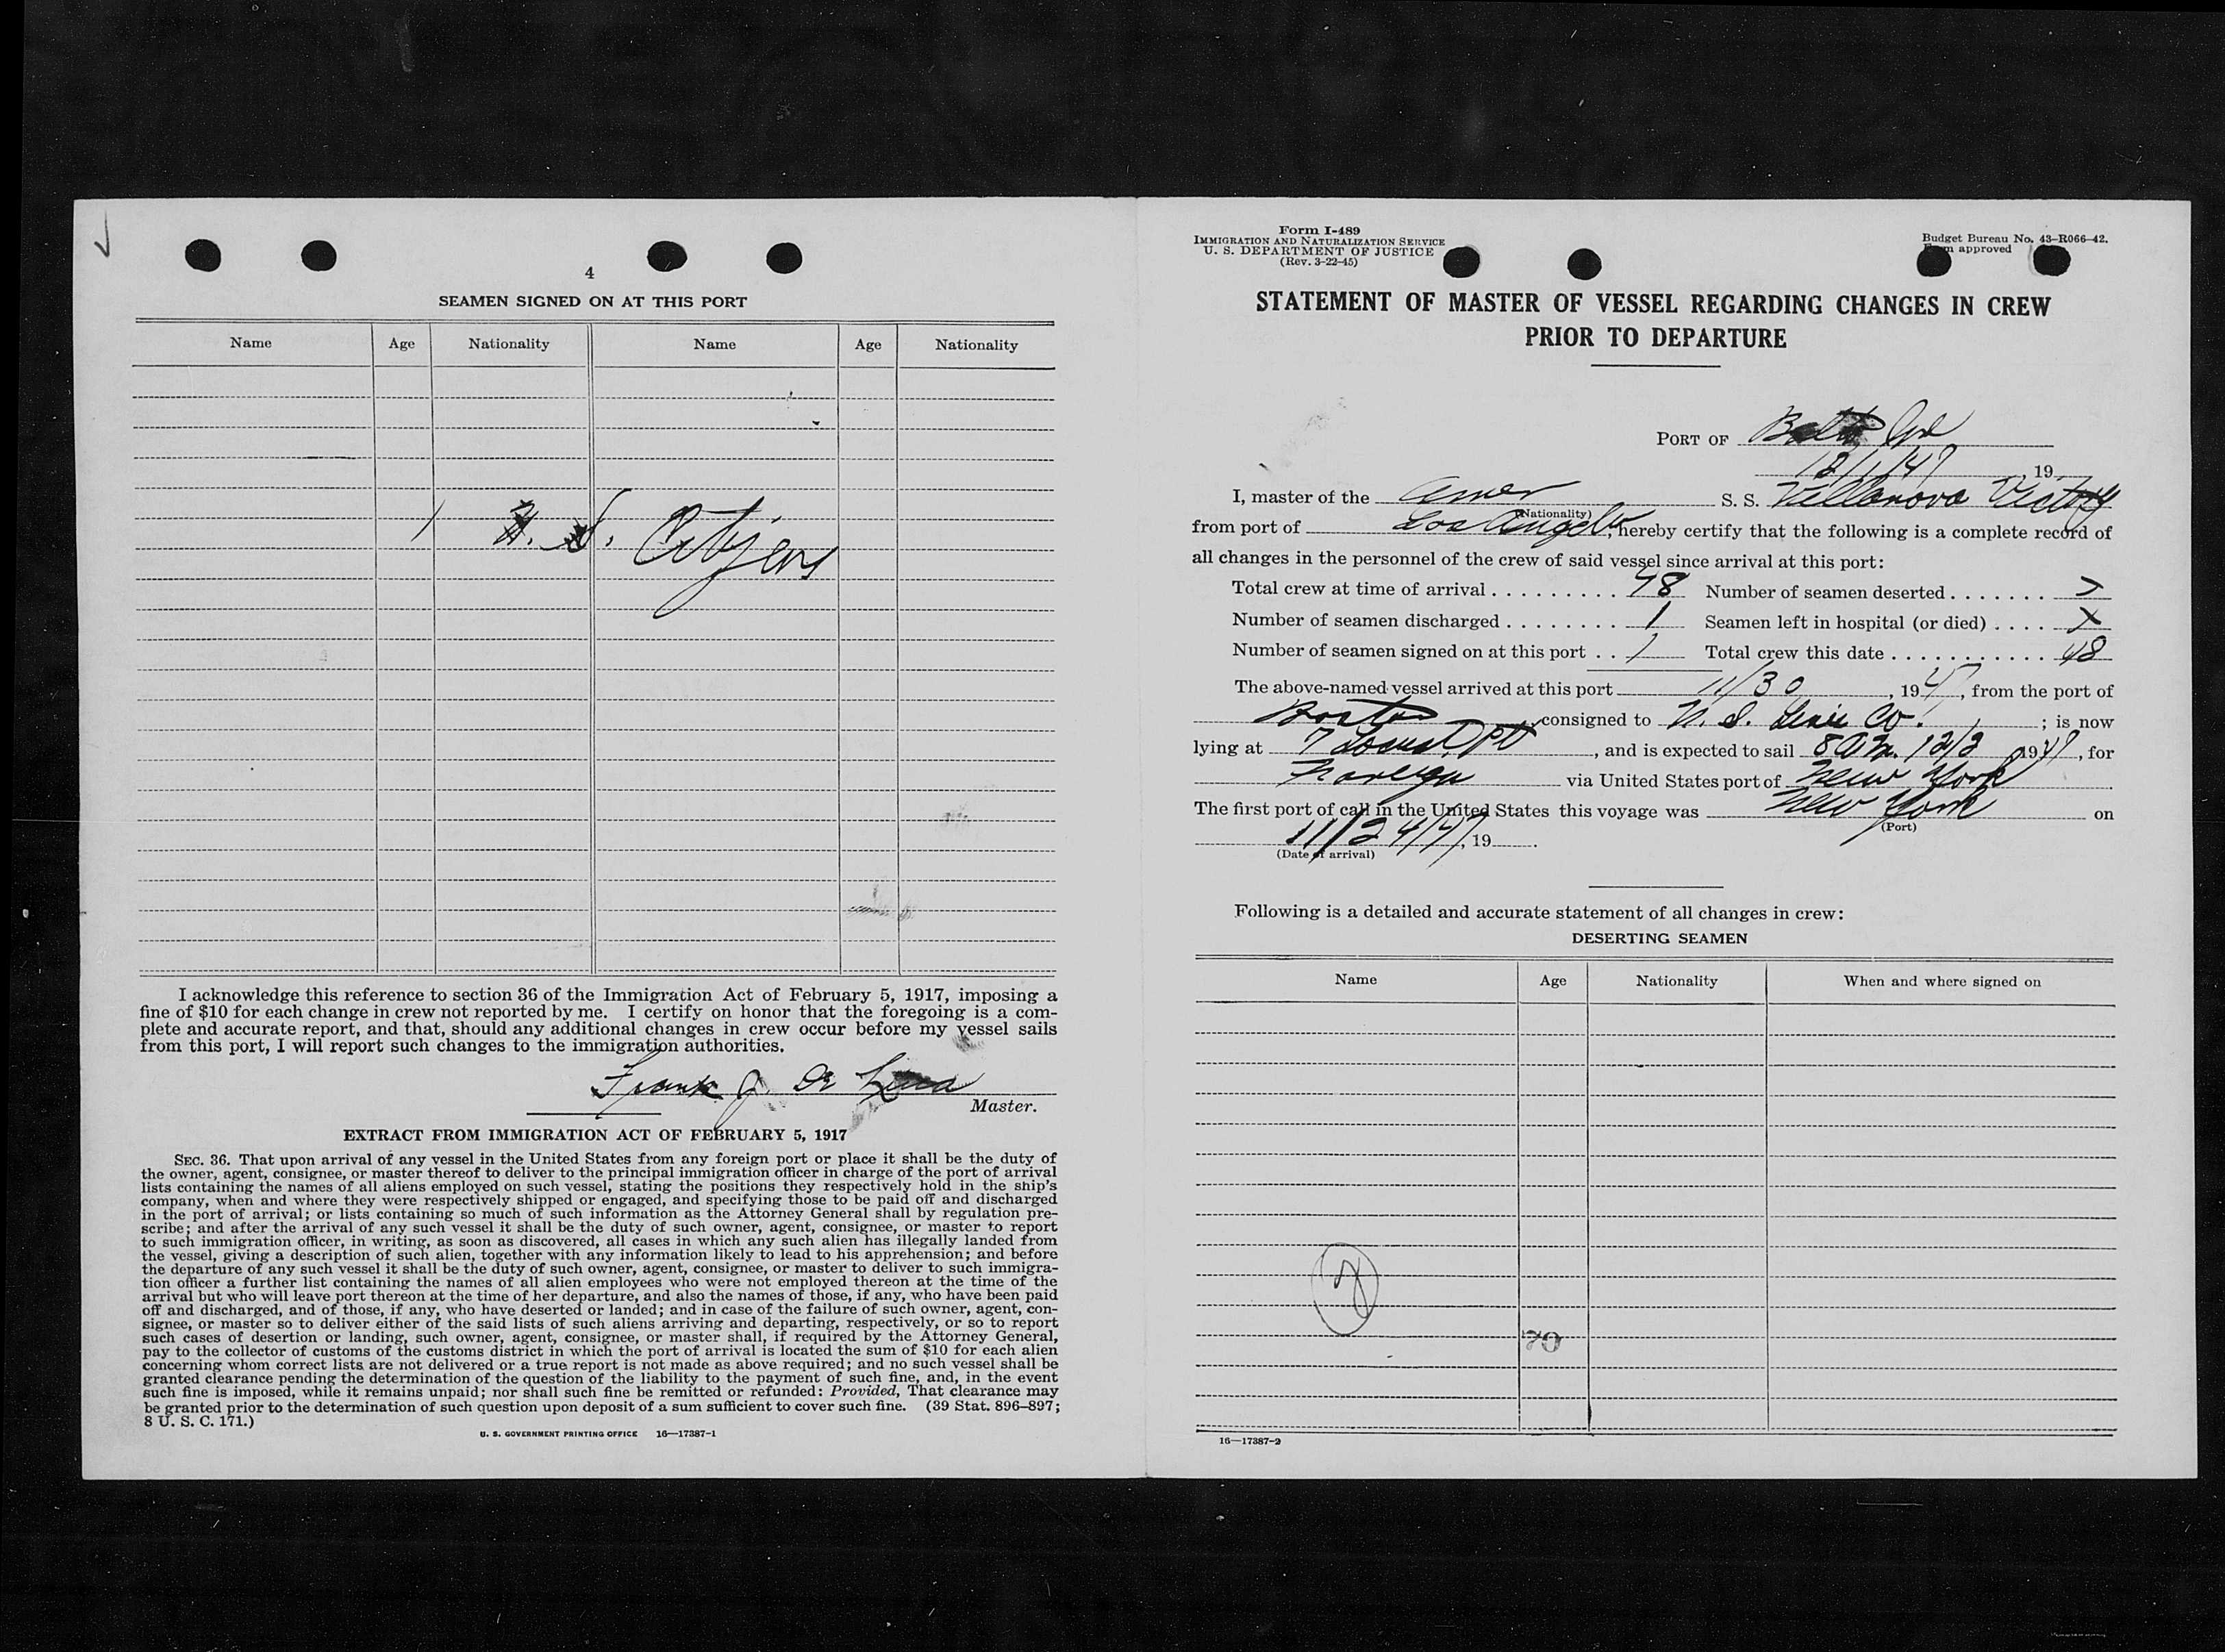 4
SEAMEN SIGNED ON AT THIS PORT
Name Age Nationality Name Age Nationality
1 U. S. Citizens
I acknowledge this reference to section 36 of the Immigration Act of February 5, 1917, imposing a
fine of $10 for each change in crew not reported by me. I certify on honor that the foregoing is a com-
plete and accurate report, and that, should any additional changes in crew occur before my vessel sails
from this port, I will report such changes to the immigration authorities.
Frank J. De
Master.
EXTRACT FROM IMMIGRATION ACT OF FEBRUARY 5, 1917
SEC. 36. That upon arrival of any vessel in the United States from any foreign port or place it shall be the duty of
the owner, agent, consignee, or master thereof to deliver to the principal immigration officer in charge of the port of arrival
lists containing the names of all aliens employed on such vessel, stating the positions they respectively hold in the ship's
company, when and where they were respectively shipped or engaged, and specifying those to be paid off and discharged
in the port of arrival; or lists containing so much of such information as the Attorney General shall by regulation pre-
scribe; and after the arrival of any such vessel it shall be the duty of such owner, agent, consignee, or master to report
to such immigration officer, in writing, as soon as discovered, all cases in which any such alien has illegally landed from
the vessel, giving a description of such alien, together with any information likely to lead to his apprehension; and before
the departure of any such vessel it shall be the duty of such owner, agent, consignee, or master to deliver to such immigra-
tion officer a further list containing the names of all alien employees who were not employed thereon at the time of the
arrival but who will leave port thereon at the time of her departure, and also the names of those, if any, who have been paid
off and discharged, and of those, if any, who have deserted or landed; and in case of the failure of such owner, agent, con-
signee, or master so to deliver either of the said lists of such aliens arriving and departing, respectively, or so to report
such cases of desertion or landing, such owner, agent, consignee, or master shall, if required by the Attorney General,
pay to the collector of customs of the customs district in which the port of arrival is located the sum of $10 for each alien
concerning whom correct lists are not delivered or a true report is not made as above required; and no such vessel shall be
granted clearance pending the determination of the question of the liability to the payment of such fine, and, in the event
such fine is imposed, while it remains unpaid; nor shall such fine be remitted or refunded: Provided, That clearance may
be granted prior to the determination of such question upon deposit of a sum sufficient to cover such fine. (39 Stat. 896–897;
8 U. S. C. 171.)
U. S. GOVERNMENT PRINTING OFFICE 16—17387-1
Form I-489
IMMIGRATION AND NATURALIZATION SERVICE
U. S. DEPARTMENT OF JUSTICE
(Rev. 3-22-45)
Budget Bureau No. 43-R066-42.
Form approved
STATEMENT OF MASTER OF VESSEL REGARDING CHANGES IN CREW
PRIOR TO DEPARTURE
PORT OF Balto Md
12/1/47, 19
I, master of the Amer S. S. Villanova Victory
(Nationality)
from port of Los Angeles, hereby certify that the following is a complete record of
all changes in the personnel of the crew of said vessel since arrival at this port:
Total crew at time of arrival 48 Number of seamen deserted
Number of seamen discharged 1 Seamen left in hospital (or died) X
Number of seamen signed on at this port 1 Total crew this date 48
The above-named vessel arrived at this port 11/30, 1947, from the port of
Boston, consigned to U. S. Line Co.; is now
lying at 7 Locust Pt, and is expected to sail 8 A.M. 12/2 1947, for
Foreign via United States port of New York
The first port of call in the United States this voyage was New York on
(Port)
11/24/47, 19
(Date of arrival)
Following is a detailed and accurate statement of all changes in crew:
DESERTING SEAMEN
Name Age Nationality When and where signed on
16—17387-2